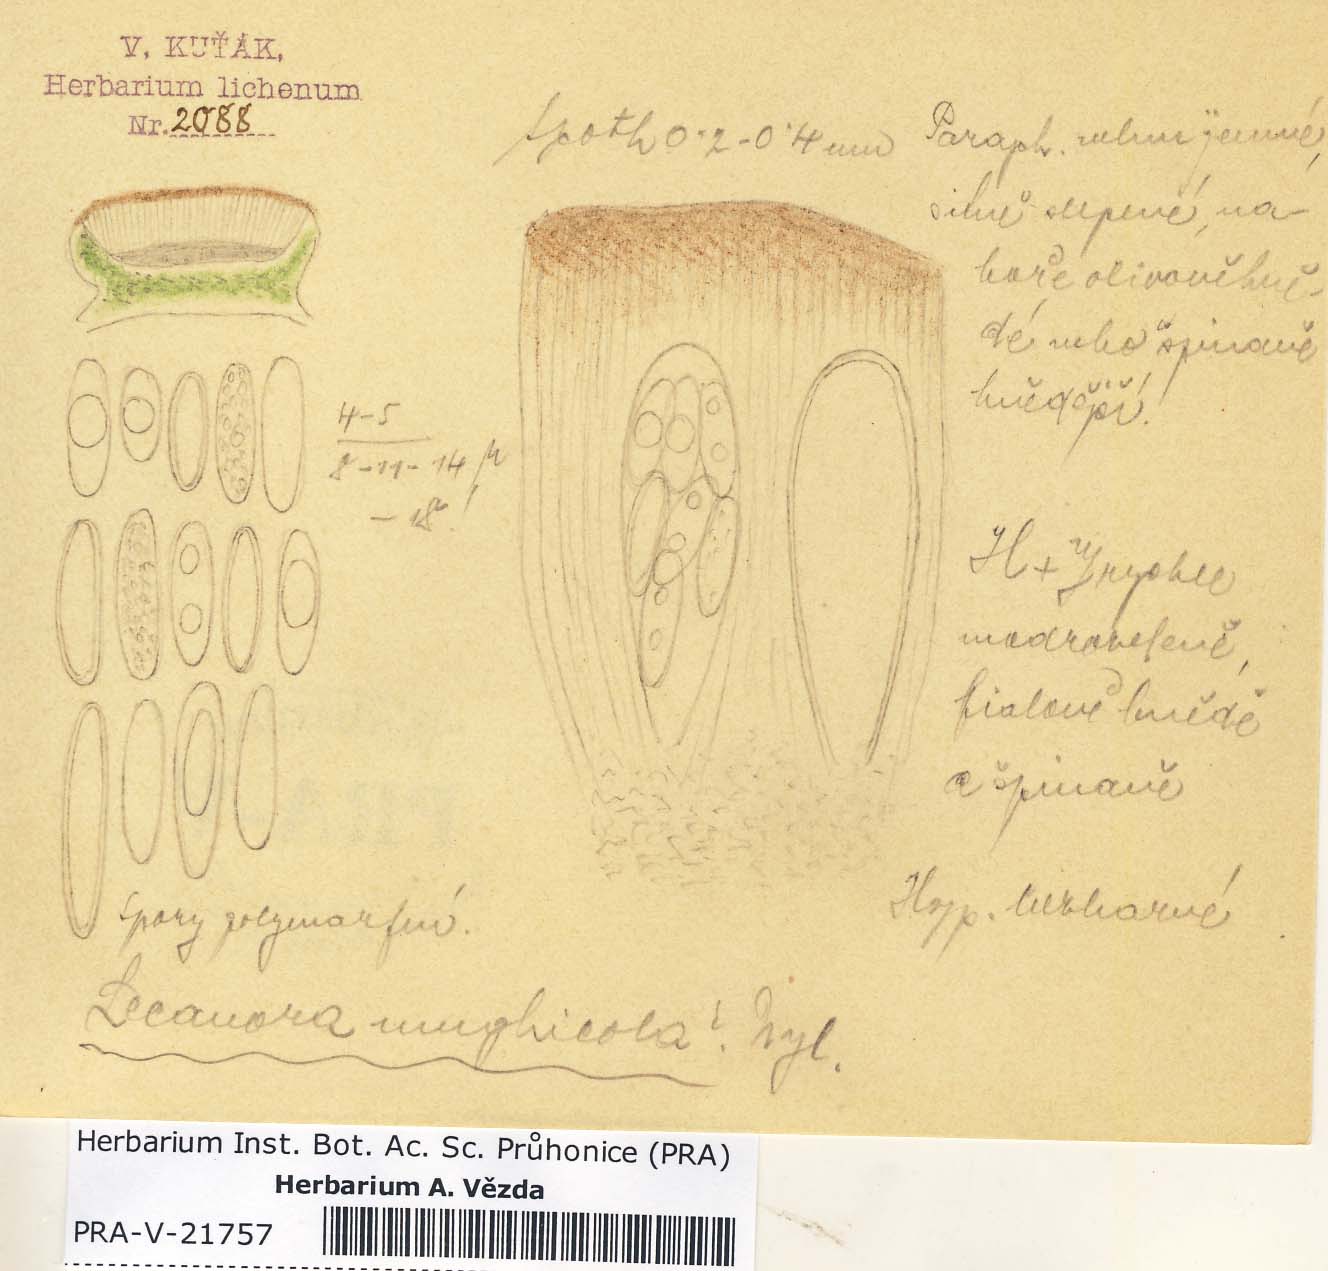 V. KUŤÁK,
Herbarium lichenum
Nr. 2088
Apoth 0·2-0·4 mm
Paraph. velmi jemné,
silně slepené, na-
hoře olivověhně-
dé nebo špinavě
hnědější!
4-5
8-11-14 μ
- 18!
H + J rychle
modrozeleně,
fialově hnědě
a špinavě
Hyp. bezbarvé
Spory polymorfní.
Lecanora mughicola? Nyl.
Herbarium Inst. Bot. Ac. Sc. Průhonice (PRA)
Herbarium A. Vězda
PRA-V-21757